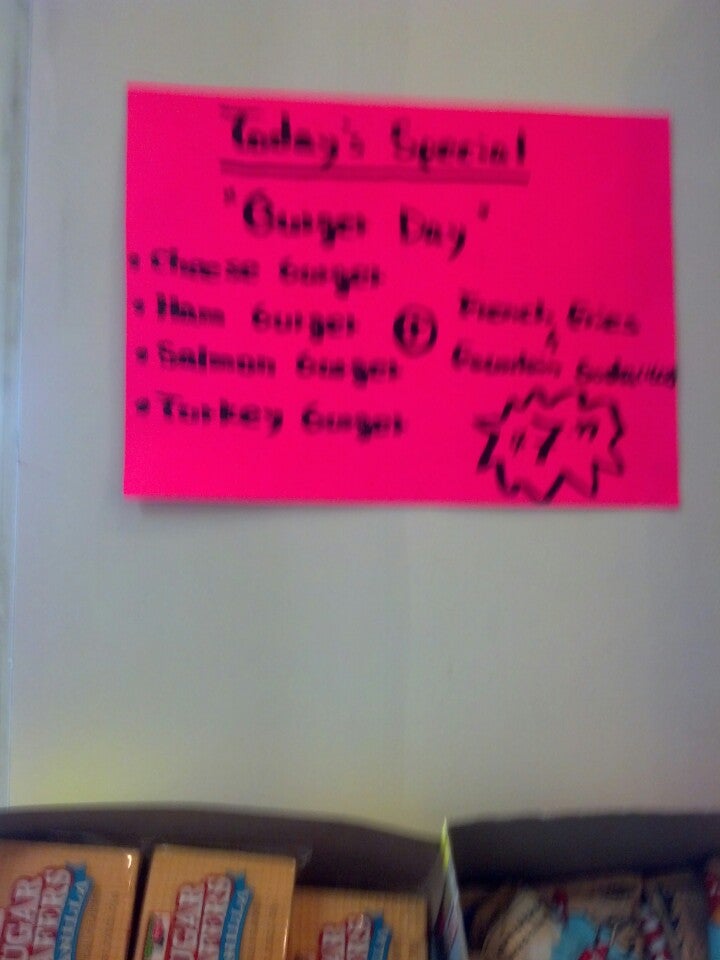 Today's Special
"Burger Day"
• Cheese Burger
• Ham Burger
• Salmon Burger
• Turkey Burger
+
French Fries
&
Fountain Soda
$7
SUGAR
WAFERS
VANILLA
UGAR
AFERS
NILLA
GAR
FERS